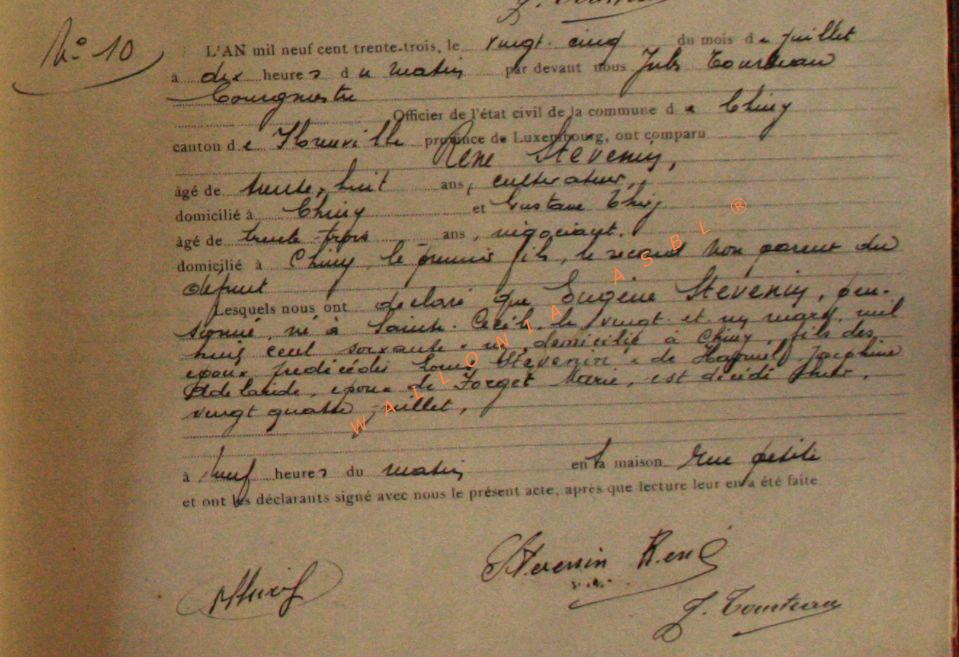 N° 10
L'AN mil neuf cent trente-trois, le vingt cinq du mois de juillet
à dix heures du matin par devant nous Jules Tourteau
Bourgmestre
Officier de l'état civil de la commune de Chiny
canton de Florenville province de Luxembourg, ont comparu
René Stevenin,
âgé de trente-huit ans, cultivateur,
domicilié à Chiny et Gustave Thiry
âgé de trente-trois ans, négociant,
domicilié à Chiny, le premier fils, le second non parent du
défunt
Lesquels nous ont déclaré que Eugène Stevenin, pen-
sionné, né à Sainte-Cécile, le vingt et un mars mil
huit cent soixante et un, domicilié à Chiny, fils des
époux prédécédés Louis Stevenin et de Joséphine
Adelaïde, époux de Forget Marie, est décédé hier,
vingt quatre juillet,
à neuf heures du matin en la maison rue petite
et ont les déclarants signé avec nous le présent acte, après que lecture leur en a été faite.
Stevenin René
J. Tourteau
WALLONIA ASBL ®